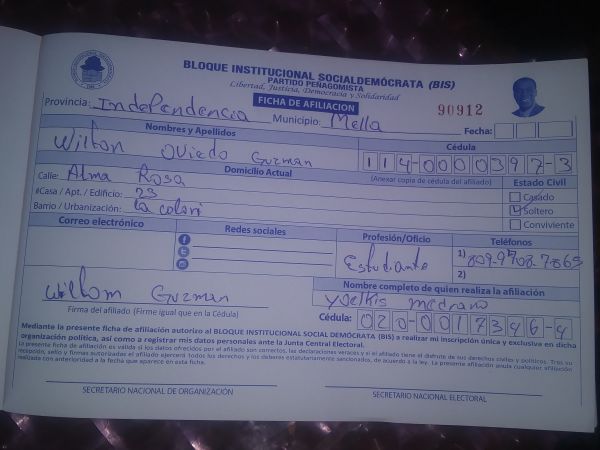 BLOQUE INSTITUCIONAL SOCIALDEMÓCRATA (BIS)
PARTIDO PEÑAGOMISTA
Libertad, Justicia, Democracia y Solidaridad
FICHA DE AFILIACION
90912
Provincia: Independencia Municipio: Mella Fecha:
Nombres y Apellidos
Wilton Oviedo Guzman
Cédula
114-0000397-3
(Anexar copia de cédula del afiliado)
Domicilio Actual
Calle: Alma Rosa
#Casa / Apt. / Edificio: 23
Barrio / Urbanización:
Estado Civil
Casado
Soltero
Conviviente
Correo electrónico
Redes sociales
Profesión/Oficio
Estudiante
Teléfonos
1)
2)
Guzman
Firma del afiliado (Firme igual que en la Cédula)
Nombre completo de quien realiza la afiliación
Yoelkis medrano
Cédula: 020-0017346-4
Mediante la presente ficha de afiliación autorizo al BLOQUE INSTITUCIONAL SOCIAL DEMÓCRATA (BIS) a realizar mi inscripción única y exclusiva en dicha
organización política, así como a registrar mis datos personales ante la Junta Central Electoral.
La presente ficha de afiliación es valida si los datos ofrecidos por el afiliado son correctos, las declaraciones veraces y si el afiliado tiene el disfrute de sus derechos civiles y políticos. Tras su
recepción, sello y firmas autorizadas el afiliado ejercerá todos los derechos y los deberes estatutariamente sancionados, de acuerdo a la ley. La presente afiliación anula cualquier afiliación
realizada con anterioridad a la fecha que aparece en esta ficha.
SECRETARIO NACIONAL DE ORGANIZACIÓN
SECRETARIO NACIONAL ELECTORAL